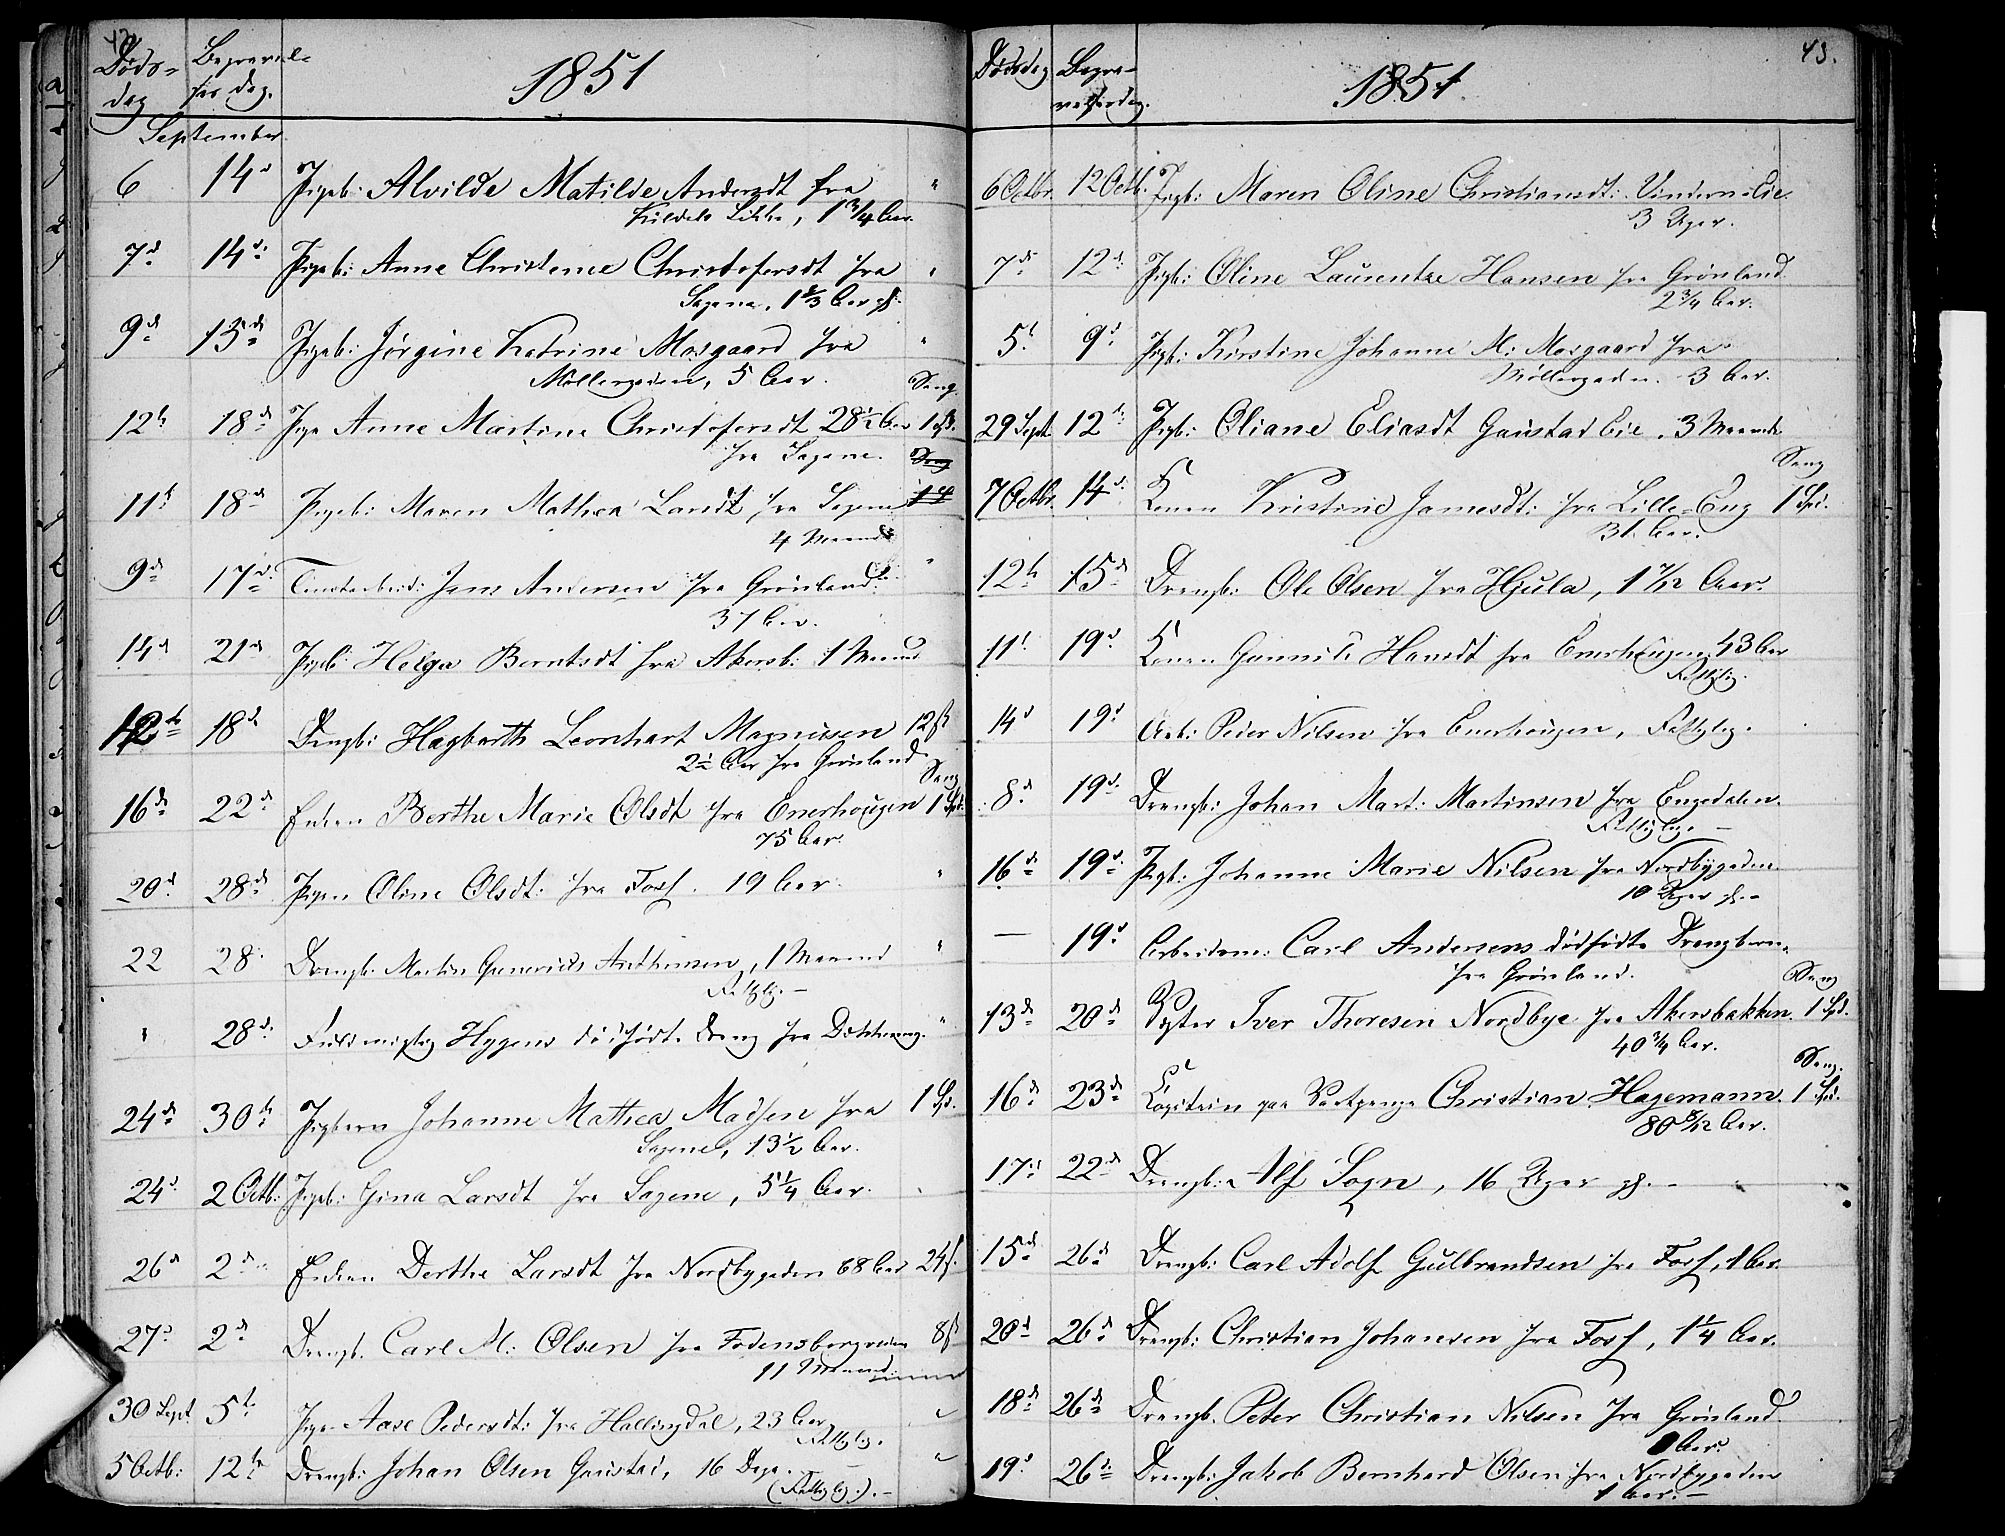 42.
Døds-
dag
Begravel-
ses dag.
1851
September.
6 14d Pigeb: Alvilde Matilde Andersdt fra "
1 3/4 Aar.
7d 14d Pigeb: Anne Christence Christofersdt fra "
Sagene, 1 2/3 Aar gl.
9d 13d Pigeb: Jørgine Katrine Mosgaard fra "
Møllergaden, 5 Aar.
Seng
12te 18de Pige Anne Martine Christofersdt 28½ Aar 1 Spd.
fra Sagene. Seng
11te 18de Pigeb: Maren Mathea Larsdt fra Sagene
4 Maaned
9de 17de Jens Andersen fra Grønland "
37 Aar.
14d 21de Pigeb: Helga Berntsdt fra Akersb: 1 Maaned
12te 18de Drengb: Hagbarth Leonhart Magnusen 12 ß
2½ Aar fra Grønland
Seng
16de 22de Enken Berthe Marie Olsdt fra Enerhougen 1 Spd.
75 Aar.
20d 28de Pigen Oline Olsdt: fra Foss. 19 Aar. "
22 28. Drengb. Martin Anthonsen, 1 Maaned "
Fattiglig. —
" 28de Fuldmægtig Hygens dødfødte Dreng fra "
24de 30te Pigebarn Johanne Mathea Madsen fra 1 Spd.
Sagene, 13½ Aar.
24d 2 Octb: Pigeb: Gina Larsdt fra Sagene, 5¼ Aar.
26d 2d Enken Dorthe Larsdt fra Nordbygaden 68 Aar 24 ß
27d 2de Drengb. Carl M: Olsen fra 8 ß
11 Maaned
30 Sept. 5te Pige Aase Pedersdt: fra Hallingdal, 23 Aar
Fattiglig.
5 Octb: 12te Drengb: Johan Olsen Gaustad, 16 Dage. —
(Fattiglig.). —
43.
Dødsdag
Begra-
velsesdag.
1851
6 Octbr. 12 Octb. Pigb: Maren Oline Christiansdt: Vindern-Eie
3 Uger.
7de 12d Pigb: Oline Laurentze Hansen fra Grønland.
2 3/4 Aar.
5t 9d Pigb: Kirstine Johanne M: Mosgaard fra
Møllergaden. 3 Aar.
29 Sept. 12te Pigb: Oliane Eliasdt Gaustad Eie. 3 Maaneder
Seng
7 Octbr. 14d Konen Kristine Jamesdt: fra Lille-Eng 1 Spd.
31 Aar.
12te 15de Drengb: Ole Olsen fra Hjula, 1 7/12 Aar.
11t 19d Konen Gunnild Hansdt fra Enerhougen 43 Aar
Fattiglig.
14d 19d Arb: Peder Nilsen fra Enerhougen, Fattiglig.
8d 19d. Drengb: Johan Mart: Martinsen fra Engedalen.
Fattiglig. —
16de 19de Pigb: Johanne Marie Nilsen fra Nordbygaden.
10 Uger gl. —
— 19d Arbeidsm: Carl Andersens dødfødte Drengbarn.
fra Grønland.
Seng
13de 20de Iver Thoresen Nordbye fra Akersbakken. 1 Spd.
40 3/4 Aar.
Seng.
16de 23de Capitain paa Vartpenge Christian Hagemann. 1 Spd.
80 8/12 Aar.
17de 22de Drengb: Alf Sogn, 16 Uger gl. —
15de 26de Drengb: Carl Adolf Gulbrandsen fra Foss, 1 Aar.
20d 26de Drengb: Christian Johansen fra Foss, 1¼ Aar.
18de 26de Drengb. Peter Christian Nilsen fra Grønland
Aar.
19d 26de Drengb: Jakob Bernhard Olsen fra Nordbygaden
1 Aar. —